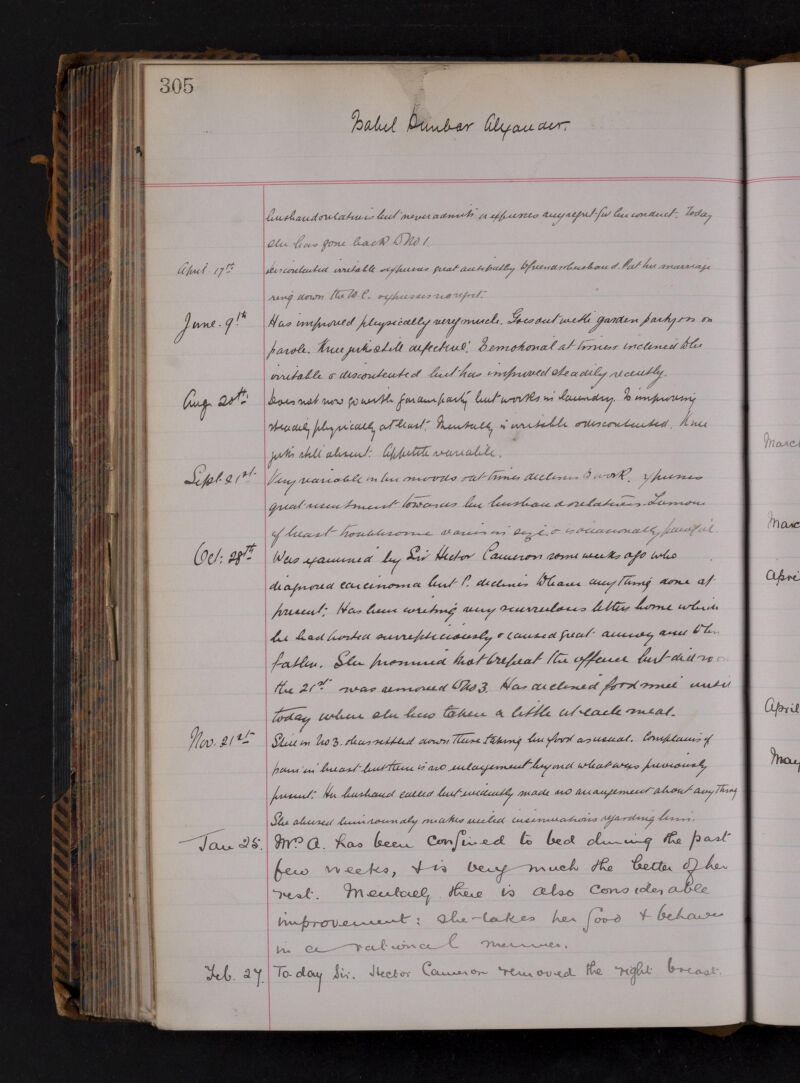 305
Isabel Dunbar Alexander.
husband or relatives but never admits or expresses any regret for her conduct. Today
she has gone back to No 1.
April 17th Discontented irritable expresses great antipathy to friends & husband. Put her marriage
ring down the W.C. expresses no regret.
June. 9th Has improved physically very much. Goes out with garden party on
parole. Knee jerks still defective. Is emotional at times inclined to be
irritable & discontented but has improved steadily recently.
Aug 20th Does not now go with garden party but works in laundry. Is improving
steadily physically at least. Mentally is irritable & discontented. Knee
jerks still absent. Appetite variable.
Sept. 21st. Very variable in her moods & at times declines to work. Expresses
great resentment towards her husband & relatives. Tumour
of breast troublesome varies in size & is occasionally painful.
Oct: 28th Was examined by Sir Hector Cameron some weeks ago who
diagnosed carcinoma but P. declines to have anything done at
present. Has been writing very scurrulous letters home which
she had posted surreptitiously & caused great annoyance to her
father. She promised not to repeat the offence but did so on
the 21st & was removed to No 3. Has declined food since until
today when she has taken a little at each meal.
Nov. 21st Still in No 3. & has settled down there taking her food as usual. Complains of
pain in breast but there is no enlargement beyond what was previously
present. Her husband called but evidently made no arrangement about anything
She abused him roundly makes veiled insinuations regarding him.
Jan 25. Mrs A. has been confined to bed during the past
few weeks, & is very much the better of her
rest. Mentally there is also considerable
improvement: she takes her food & behaves
in a rational manner.
Feb. 27. To day Sir. Hector Cameron removed the right breast.
March
March
April
April
May